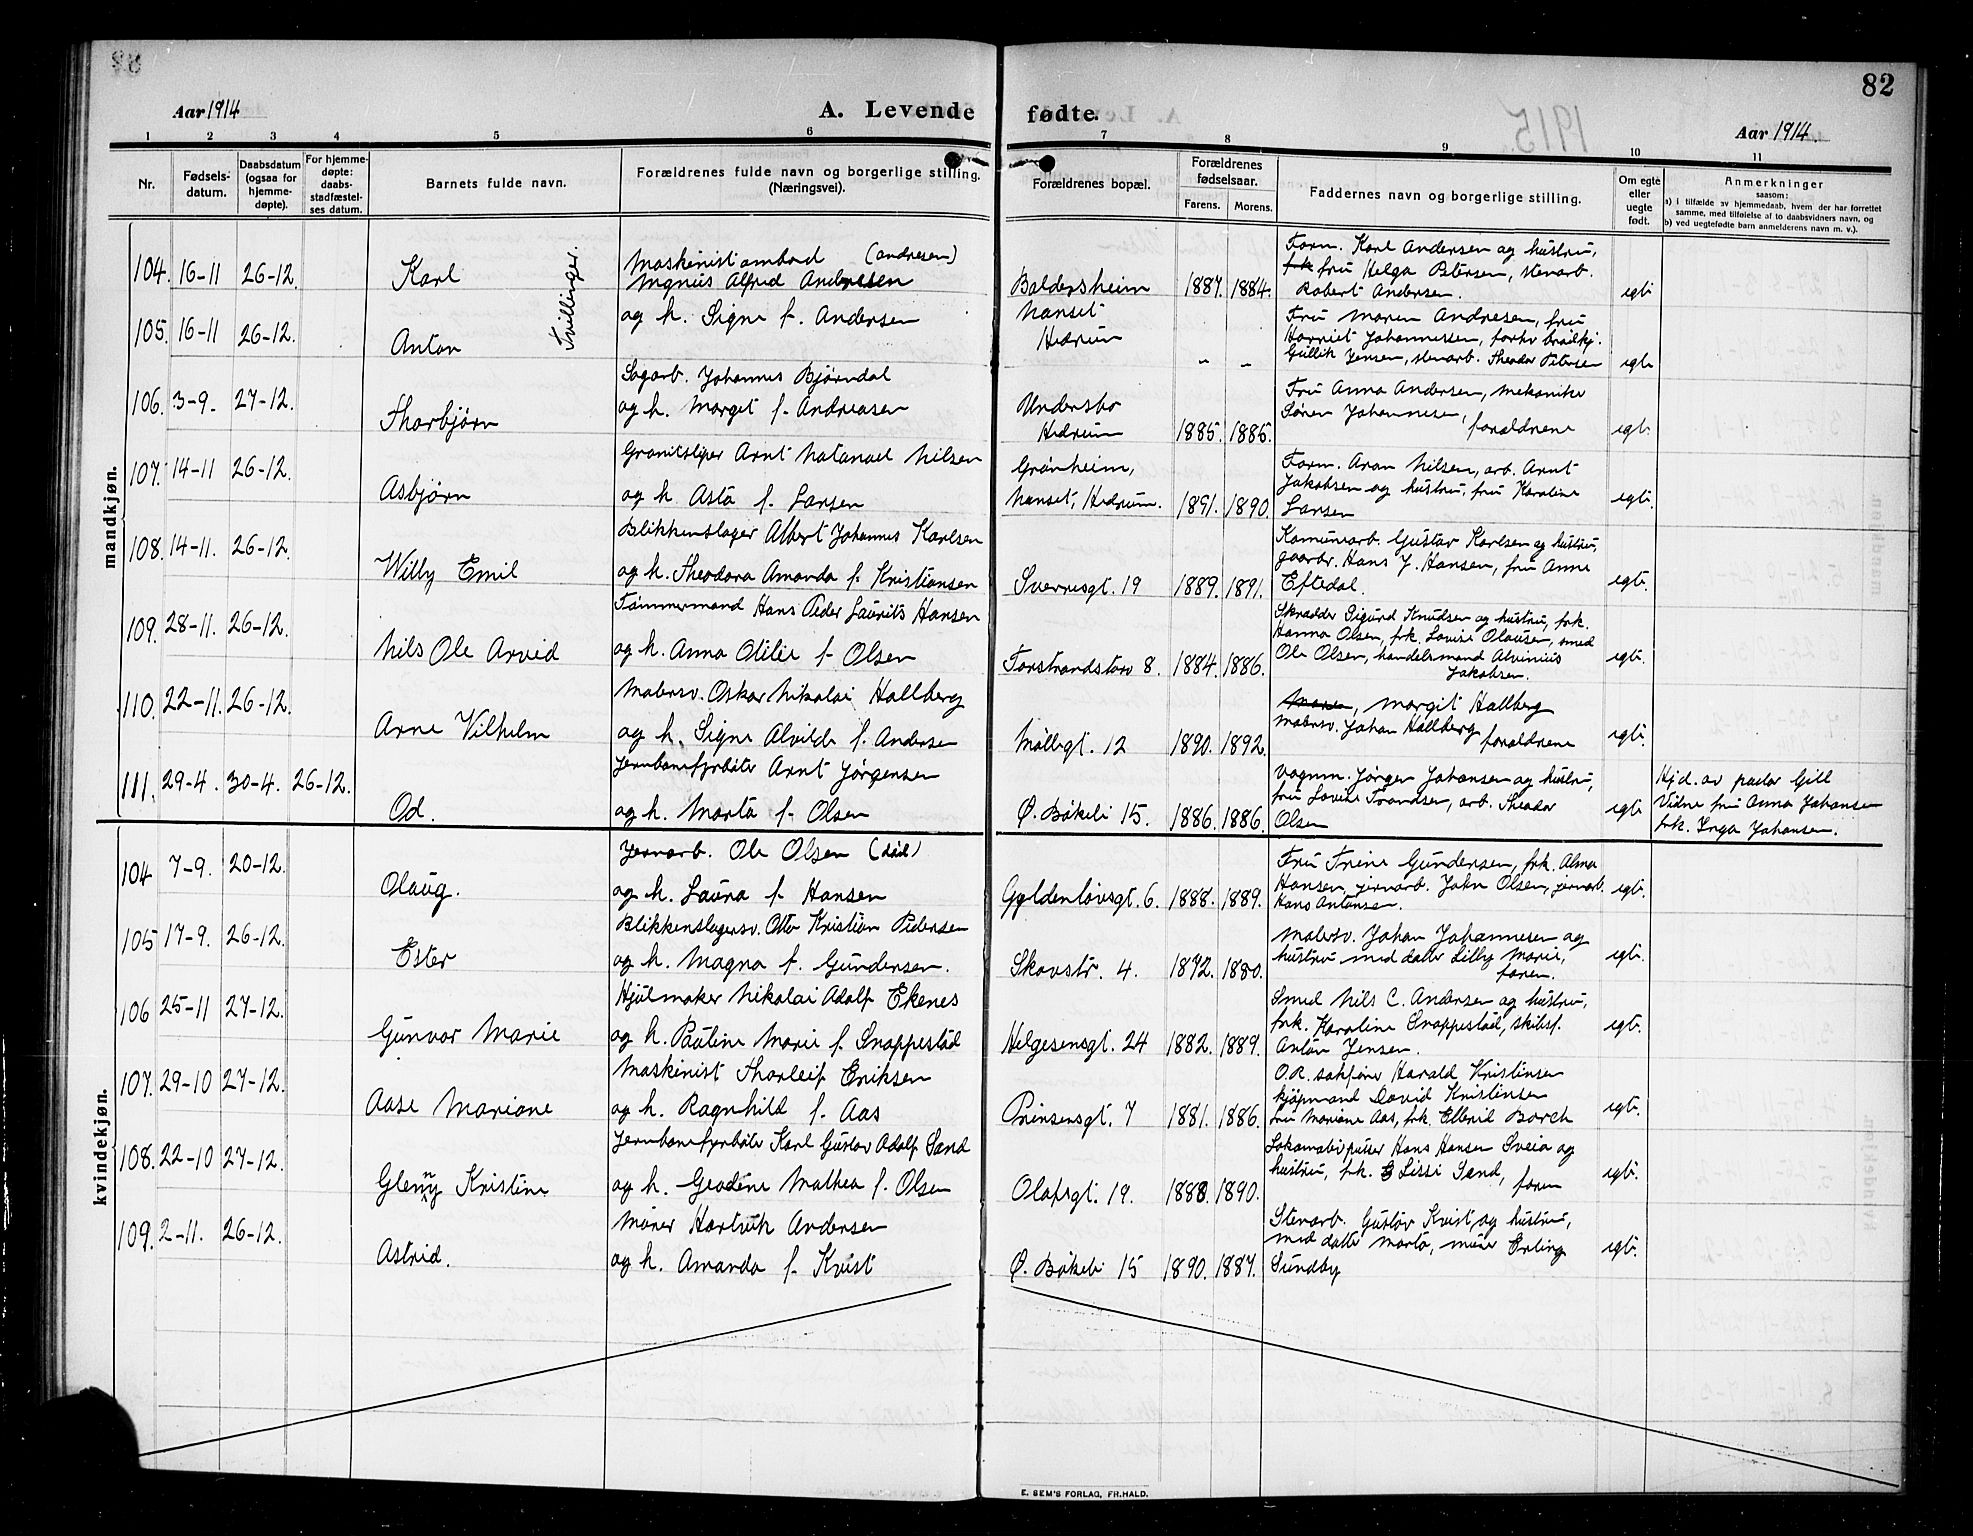 82
Aar 1914
A. Levende
fødte.
1915
Aar 1914.
1 2 3 4 5 6 7 8 9 10 11
Nr.
Fødsels-
datum.
Daabsdatum
(ogsaa for
hjemme-
døpte).
For hjemme-
døpte:
daabs-
stadfæstel-
ses datum.
Barnets fulde navn.
Forældrenes fulde navn og borgerlige stilling.
(Næringsvei).
Forældrenes bopæl.
Forældrenes
fødselsaar.
Farens. Morens.
Faddernes navn og borgerlige stilling.
Om egte
eller
uegte
født.
Anmerkninger
saasom:
a) i tilfælde av hjemmedaab, hvem der har forrettet
samme, med tilføielse af to daabsvidners navn, og
b) ved uegtefødte barn anmelderens navn m. v.).
mandkjøn.
104. 16-11 26-12. Karl
Tvillinger.
Maskinist ombord (Andresen)
Magnus Alfred Andresen
Boldersheim
Nanset
Hedrum
1887. 1884.
Form. Karl Andersen og hustru,
fru Helga Petersen, stenarb.
Robert Andersen.
egte
105. 16-11 26-12. Anton
og h. Signe f. Andersen
" "
Fru Maren Andresen, fru
Harriet Johannessen, forhv brødkj.
Gullik Jensen, stenarb. Theodor Petersen
egte
106. 3-9. 27-12. Thorbjørn
Sagarb. Johannes Bjørndal
og h. Margit f. Andreasen
Undersbo
Hedrum
1885. 1885.
Fru Anna Andersen, mekanike
Søren Johannesen,
forældrene
egte.
107. 14-11 26-12. Asbjørn
Granitsliper Arnt Natanael Nilsen
og h. Asta f. Larsen
Grønheim,
Nanset, Hedrum.
1891. 1890
Form. Aron Nilsen, arb. Arnt
Jakobsen og hustru, fru Karoline
Larsen
egte.
108. 14-11. 26-12. Willy Emil
Blikkenslager Albert Johannes Karlsen
og h. Theodora Amanda f. Kristiansen
Sverresgt. 19
1889. 1891.
Komunearb. Gustav Karlsen og hustru,
gaardbr. Hans J. Hansen, fru Anne
Eftedal.
egte.
109. 28-11. 26-12. Nils Ole Arvid
Tømmermand Hans Peder Laurits Hansen
og h. Anna Otilie f. Olsen
Torstrandstorv 8.
1884. 1886.
Skrædder Sigurd Knudsen og hustru, frk.
Hanna Olsen, frk. Lovise Olausen, smed
Ole Olsen, handelsmand Alvinius
Jakobsen.
egte.
110. 22-11. 26-12. Arne Vilhelm
Malersv. Oskar Nikolai Hallberg
og h. Signe Alvilde f. Andersen
Møllegt. 12
1890. 1892.
Margit Hallberg
Malersv. Johan Hallberg
forældrene
egte.
111. 29-4. 30-4. 26-12. Od.
Jernbanefyrbøter Arnt Jørgensen
og h. Marta f. Olsen
Ø. Bøkeli 15.
1886. 1886.
Vognm. Jørgen Johansen og hustru,
fru Lovise Trandsen, arb. Theodor
Olsen
egte
Hjd. av pastor Gill
Vidne fru Anna Johansen
frk. Inga Johansen.
kvindekjøn.
104 7-9. 20-12. Olaug.
Jernarb. Ole Olsen (død)
og h. Laura f. Hansen
Gyldenløvsgt. 6.
1888. 1889.
Fru Trine Gundersen, frk. Alma
Hansen, jernarb. John Olsen, jernarb.
Hans Antonsen.
egte.
105 17-9. 26-12. Ester
Blikkenslagersv. Otto Kristian Pedersen
og h. Magna f. Gundersen.
Skovstr. 4.
1872. 1880.
Malersv. Johan Johannesen og
hustru med datter Lilly Marie,
faren.
egte.
106 25-11 27-12. Gunvor Marie
Hjulmaker Nikolai Adolf Ekenes
og h. Pauline Marie f. Snappestad
Helgesensgt. 24
1882. 1889.
Smed Nils C. Andersen og hustru,
frk. Karoline Snappestad, skibsf.
Anton Jensen.
egte.
107. 29-10 27-12. Aase Mariane
Maskinist Thorleif Eriksen
og h. Ragnhild f. Aas
Prinsensgt. 7
1881. 1886.
O.R. sakfører Harald Kristensen
kjøpmand David Kristensen
fru Mariane Aas, frk. Ellevid Borch
egte.
108. 22-10 27-12. Glenny Kristine
Jernbanefyrbøter Karl Gustav Adolf Sand
og h. Geodine Mathea f. Olsen
Olafsgt. 19.
1888. 1890.
Lokomotivpusser Hans Hansen Sveia og
hustru, frk. Lissi Sand, faren
egte.
109. 2-11. 26-12. Astrid.
Murer Hartvik Andersen
og h. Amanda f. Kvist
Ø. Bøkeli 15
1890. 1887.
Stenarb. Gustav Kvist og hustru,
med datter Marta, murer Erling
Sundby
egte.
E. SEM'S FORLAG, FR.HALD.